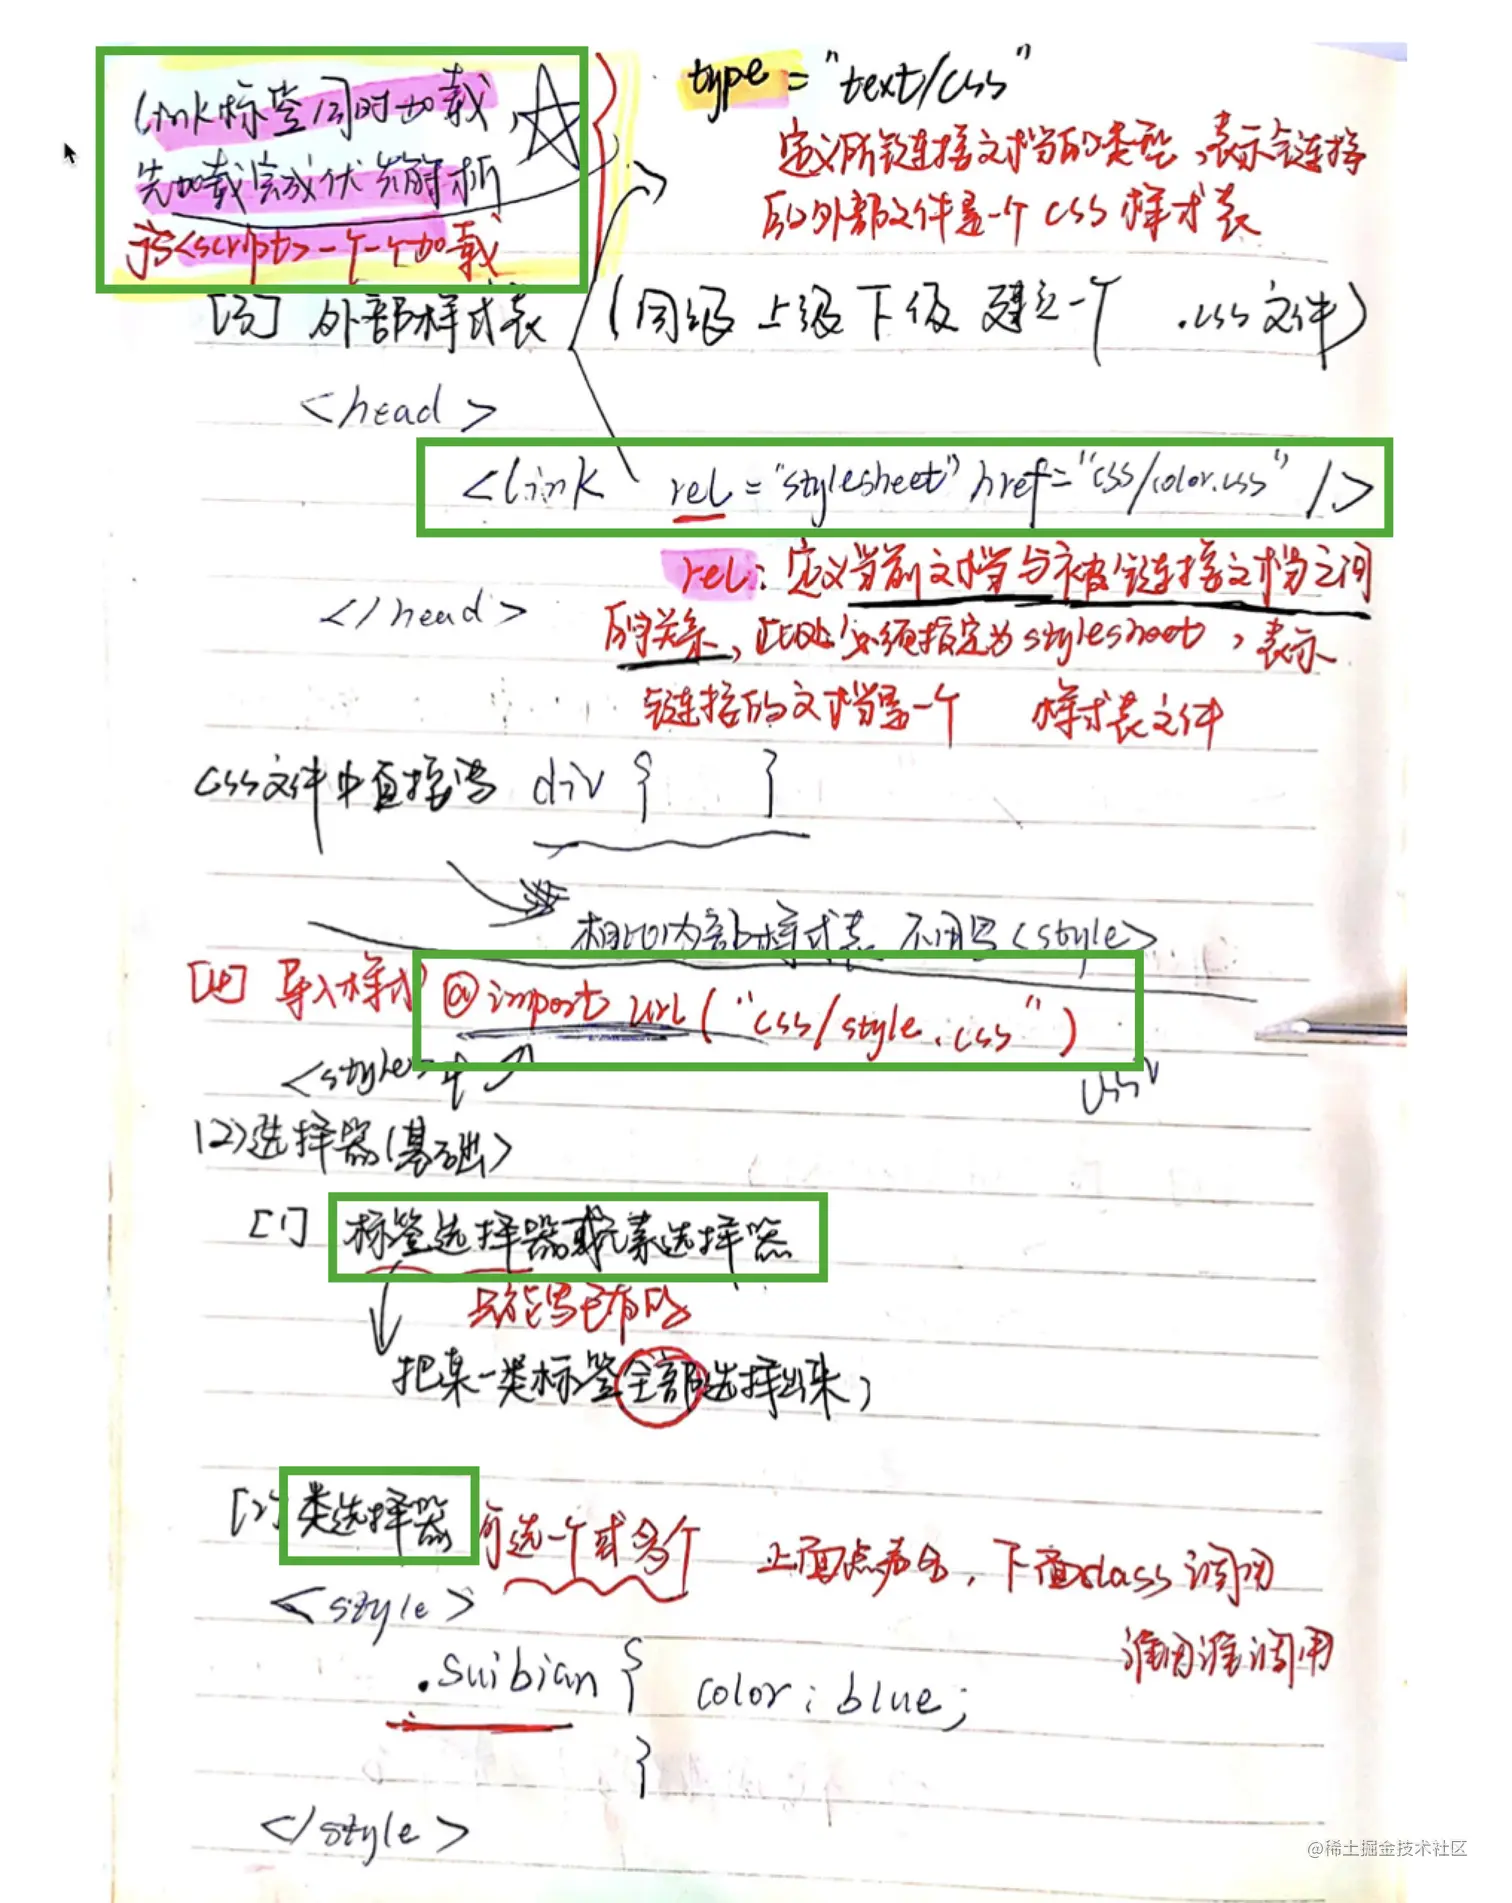 link标签同时加载
先加载完成优先解析
与<script>一个一个加载
type="text/css"
定义所链接文档的类型,表示链接
的外部文件是一个 css 样式表
[3] 外部样式表 (同级 上级 下级 建立一个 .css文件)
<head>
<link rel="stylesheet" href="css/color.css" />
rel:定义当前文档与被链接文档之间
</head>
的关系,此处必须指定为stylesheet,表示
链接的文档是一个 样式表文件
css文件中直接写 div { }
相比内部样式表 不用写<style>
[4] 导入样式 @import url("css/style.css")
<style>中
css
(2)选择器(基础)
[1] 标签选择器或元素选择器
只能写已有的
把某一类标签全部选择出来,
[2] 类选择器 可选一个或多个 上面点命名,下面class调用
<style> 谁用谁调用
.suibian { color:blue;
}
</style>
@稀土掘金技术社区